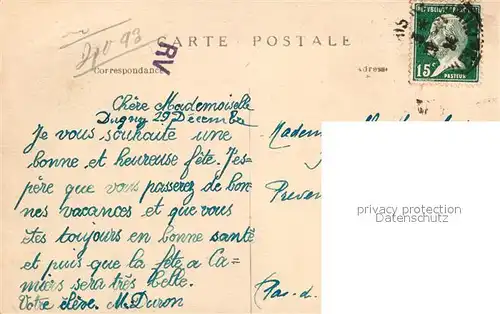 CARTE POSTALE
Correspondance
Adresse
RV
15c
PASTEUR
Chère Mademoiselle
Dugny 29 Décembre
Je vous souhaite une
bonne et heureuse fête. J'es-
père que vous passerez de bon-
nes vacances et que vous
êtes toujours en bonne santé
et puis que la fête a Ca-
miers sera très belle.
Votre élève. M. Duron
Madem
Preven
Pas-d.
privacy protection
Datenschutz